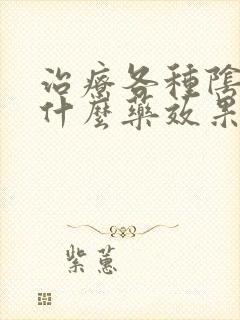 治療各種陰
什麼藥效果
紫蕙